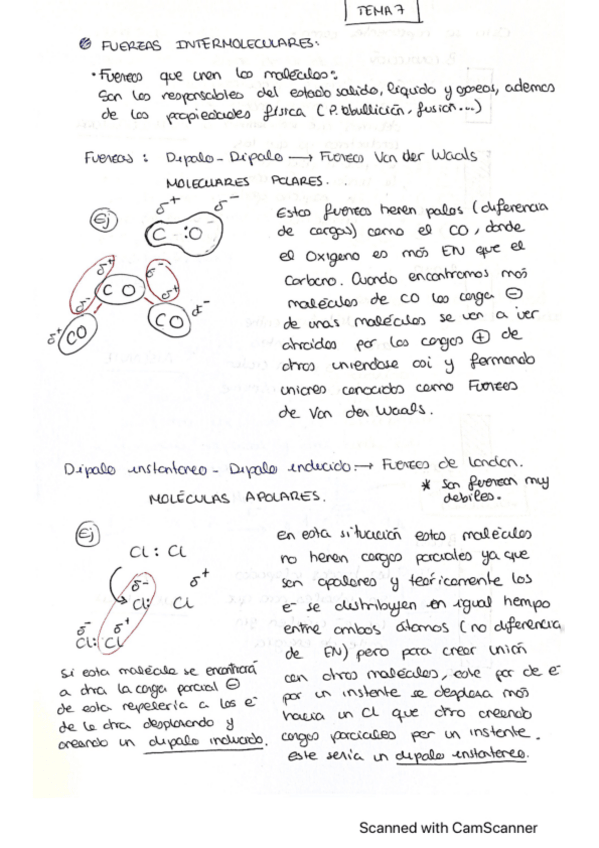 TEMA 7
FUERZAS INTERMOLECULARES:
• Fuerzas que unen las moléculas:
Son las responsables del estado sólido, líquido y gaseoso, además
de las propiedades física (P. Ebullición, fusión...)
Fuerzas: Dipolo - Dipolo → Fuerza Van der Waals
MOLECULARES POLARES.
Ej
δ+ δ-
C :O
δ+ δ-
C O
δ- δ+
δ+ CO
CO δ-
Estas fuerzas tienen polos (diferencia
de cargas) como el CO, donde
el Oxígeno es más EN que el
Carbono. Cuando encontramos más
moléculas de CO las carga ⊖
de unas moléculas se van a ver
atraidas por las cargas ⊕ de
otras uniendose asi y formando
uniones conocidas como Fuerzas
de Van der Waals.
Dipolo instantaneo - Dipolo inducido: → Fuerzas de London.
MOLÉCULAS APOLARES.
* son fuerzas muy
debiles.
Ej
Cl : Cl
δ- δ+
Cl: Cl
δ- δ+
Cl: Cl
Si esta molécula se encontrará
a otra la carga parcial ⊖
de esta repelería a los e-
de la otra desplazando y
creando un dipolo inducido.
en esta situación estas moléculas
no tienen cargas parciales ya que
son apolares y teóricamente los
e- se distribuyen en igual tiempo
entre ambos átomos (no diferencia
de EN) pero para crear unión
con otras moléculas, este par de e-
por un instante se desplaza más
hacia un Cl que otro creando
cargas parciales por un instante.
este sería un dipolo instantaneo.
Scanned with CamScanner